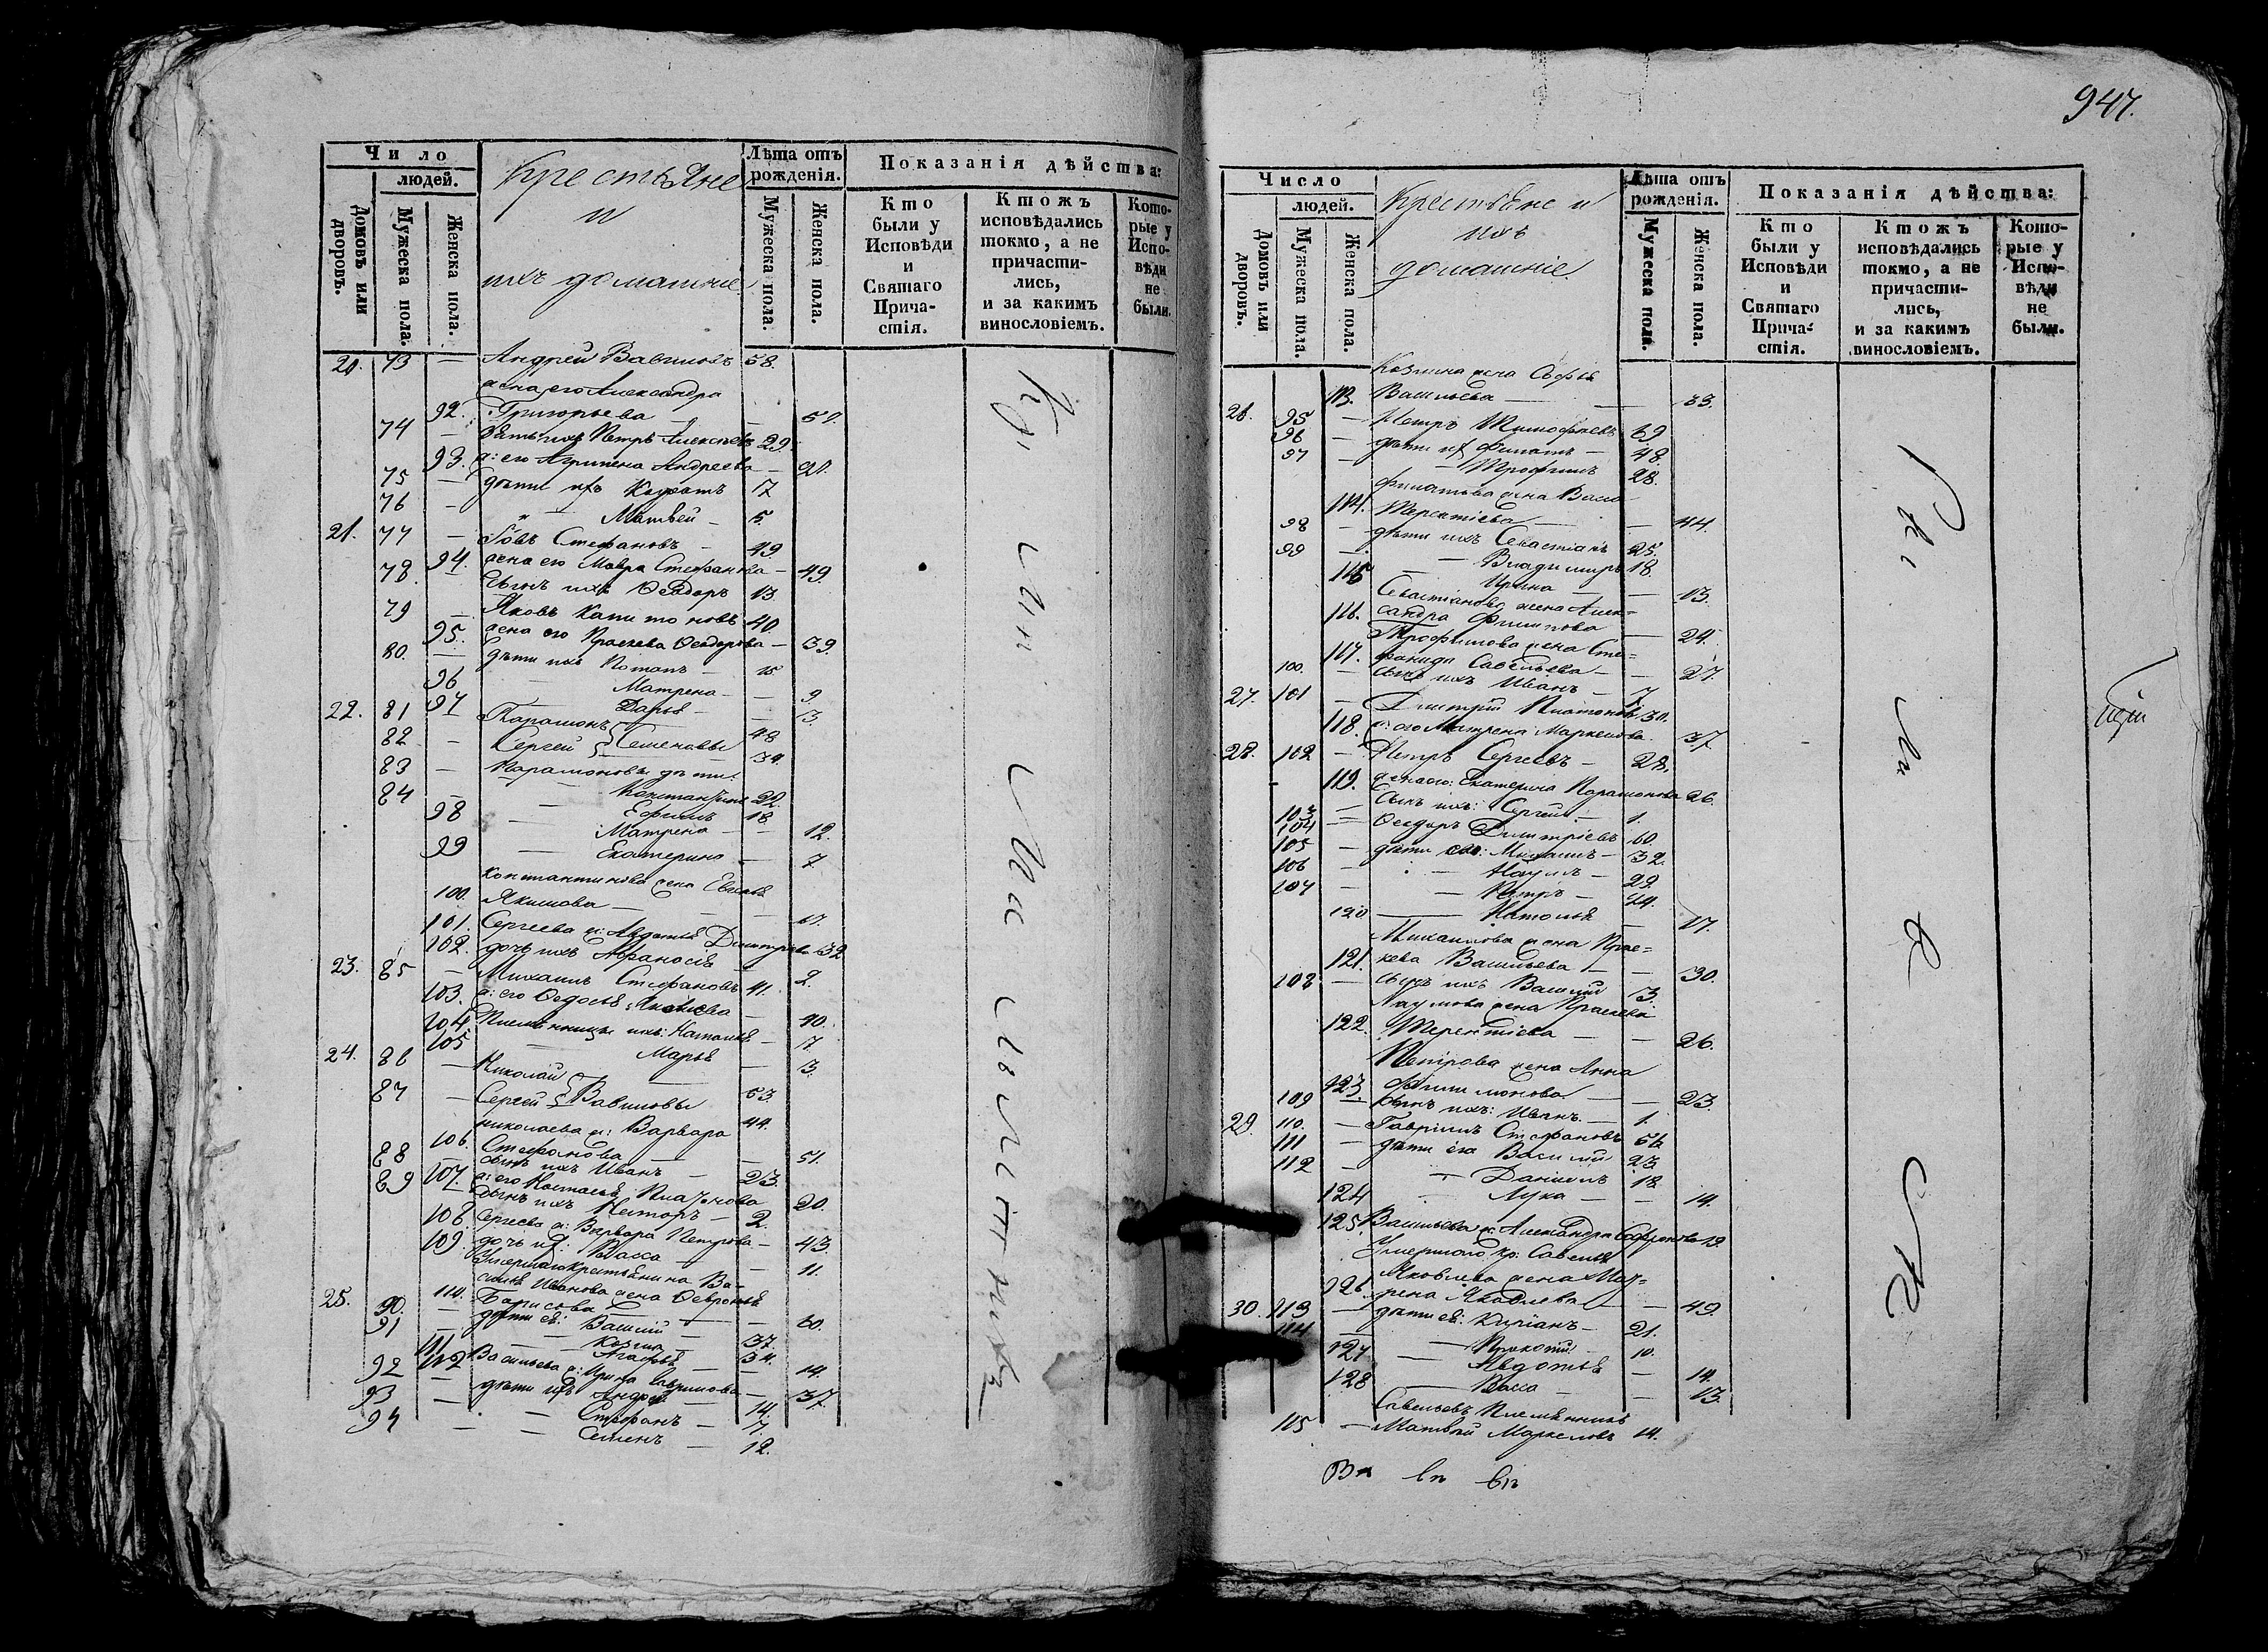 947.
Число
людей.
Домовъ или дворовъ.
Мужеска пола.
Женска пола.
Крестьяне
и
ихъ домашніе
Лѣта отъ рожденія.
Мужеска пола.
Женска пола.
Показанія дѣйства:
Кто были у Исповѣди и Святаго Причастія.
Ктожъ исповѣдались токмо, а не причастились, и за какимъ винословіемъ.
Которые у Исповѣди не были.
20. 73 — Андрей Вавиловъ 58.
жена его Александра
92. Григорьева —
74 — Зять ихъ Петръ Алексѣевъ 29.
93. ж: его Агрипена Андреева —
75 — дѣти ихъ
76 — Матвей — 5.
21. 77 — Іовъ Стефановъ — 49
94. жена его Мавра Стефанова — 49.
78. — Сынъ ихъ Ѳеодоръ 13.
79 — Яковъ Капитоновъ 40.
95. жена его Праскева Ѳеодорова — 39.
80. — дѣти ихъ Потапъ — 15.
96 Матрена — — 9.
97 — Дарья — — 3
22. 81 Парамонъ } Семеновы 48
82 — Сергей
83 — Парамоновы дѣти:
Константинъ 22.
84 — Ефимъ 18.
98 — Матрена — — 12.
99 — Екатерина — 7.
Константинова жена
100. Якимова — —
101. Сергеева ж: Авдотья Димитріева 32
102. дочь ихъ — 2.
23. 85 — Михаилъ Стефановъ 41.
103. ж: его Ѳедосья — 40.
104. Племянницы ихъ: Наталья — 7.
105 — Марья — 3.
24. 86 — Николай } Вавиловы 53.
87 — Сергей 44.
Николаева ж: Варвара
106. Стефанова — — 51.
88 — сынъ ихъ Иванъ — 23.
107. ж: его Настасья Платонова 20.
89 — сынъ ихъ Несторъ — 2.
108. Сергеева ж: Варвара Петрова — 43.
109. дочь ихъ: Васса — — 11.
Умершаго крестьянина Ва-
силья Иванова жена Ѳевронья
110. Борисова — — 60.
25. 90. — дѣти ея: Василій — 37.
91 — Козма — 34.
111 — Агафья — — 14.
112 Васильева ж: Ирина Гаврилова — 37.
92 — дѣти ихъ Андрей 14.
93 — Стефанъ — 7.
94 — Семенъ — 12.
Число
людей.
Домовъ или дворовъ.
Мужеска пола.
Женска пола.
Крестьяне и
ихъ
домашніе
Лѣта отъ рожденія.
Мужеска пола.
Женска пола.
Показанія дѣйства:
Кто были у Исповѣди и Святаго Причастія.
Ктожъ исповѣдались токмо, а не причастились, и за какимъ винословіемъ.
Которые у Исповѣди не были.
Козмина жена Софья
113. Васильева — — 33.
26. 95 — Петръ Тимофѣевъ 69
96 — дѣти его Филатъ — 48.
97 — Трофимъ 28.
Филатова жена Васса
114. Терентіева — — 44.
98 — дѣти ихъ Севастіанъ 25.
99 — Владимиръ 18.
115 — Ирина — — 13.
Севастіанова жена Алек-
116. сандра Филипова — 24.
Трофимова жена Сте-
117. фанида Савельева — — 27.
100. — сынъ ихъ Иванъ — 7.
27. 101 — Дмитрій Платоновъ 30.
118. ж: его Матрена Маркелова. 37
28. 102 — Петръ Сергеевъ — 28.
119. жена его: Екатерина Парамонова 26.
103 — Сынъ ихъ: Сергей — 1.
104 — Ѳеодоръ Димитріевъ 60.
105 — дѣти его: Михаилъ — 32.
106 — Наумъ — 29.
107 — Петръ — 24.
120 — Наталья — 17.
Михаилова жена Прас-
121. кева Васильева — — 30.
108 — сынъ ихъ Василій 3.
Наумова жена Праскева
122. Терентіева — — 26.
Петрова жена Анна
123. Филимонова — — 23.
109 — Сынъ ихъ: Иванъ. — 1.
29. 110. — Гавріилъ Стефановъ 56
111 — дѣти его Василій 23
112 — Даніилъ 18.
124 — — 14.
125. Васильева ж: Александра 19.
Умершаго кр: Савелья
Яковлева жена Мат-
126. рена Яковлева — — 49.
30. 113 — дѣти ея: Кипріанъ — 21.
114 — Прокопій 10.
127 — Авдотья — 14.
128 — Васса — — 13.
Савельевъ племянникъ
115 — Матвей Маркеловъ 14.